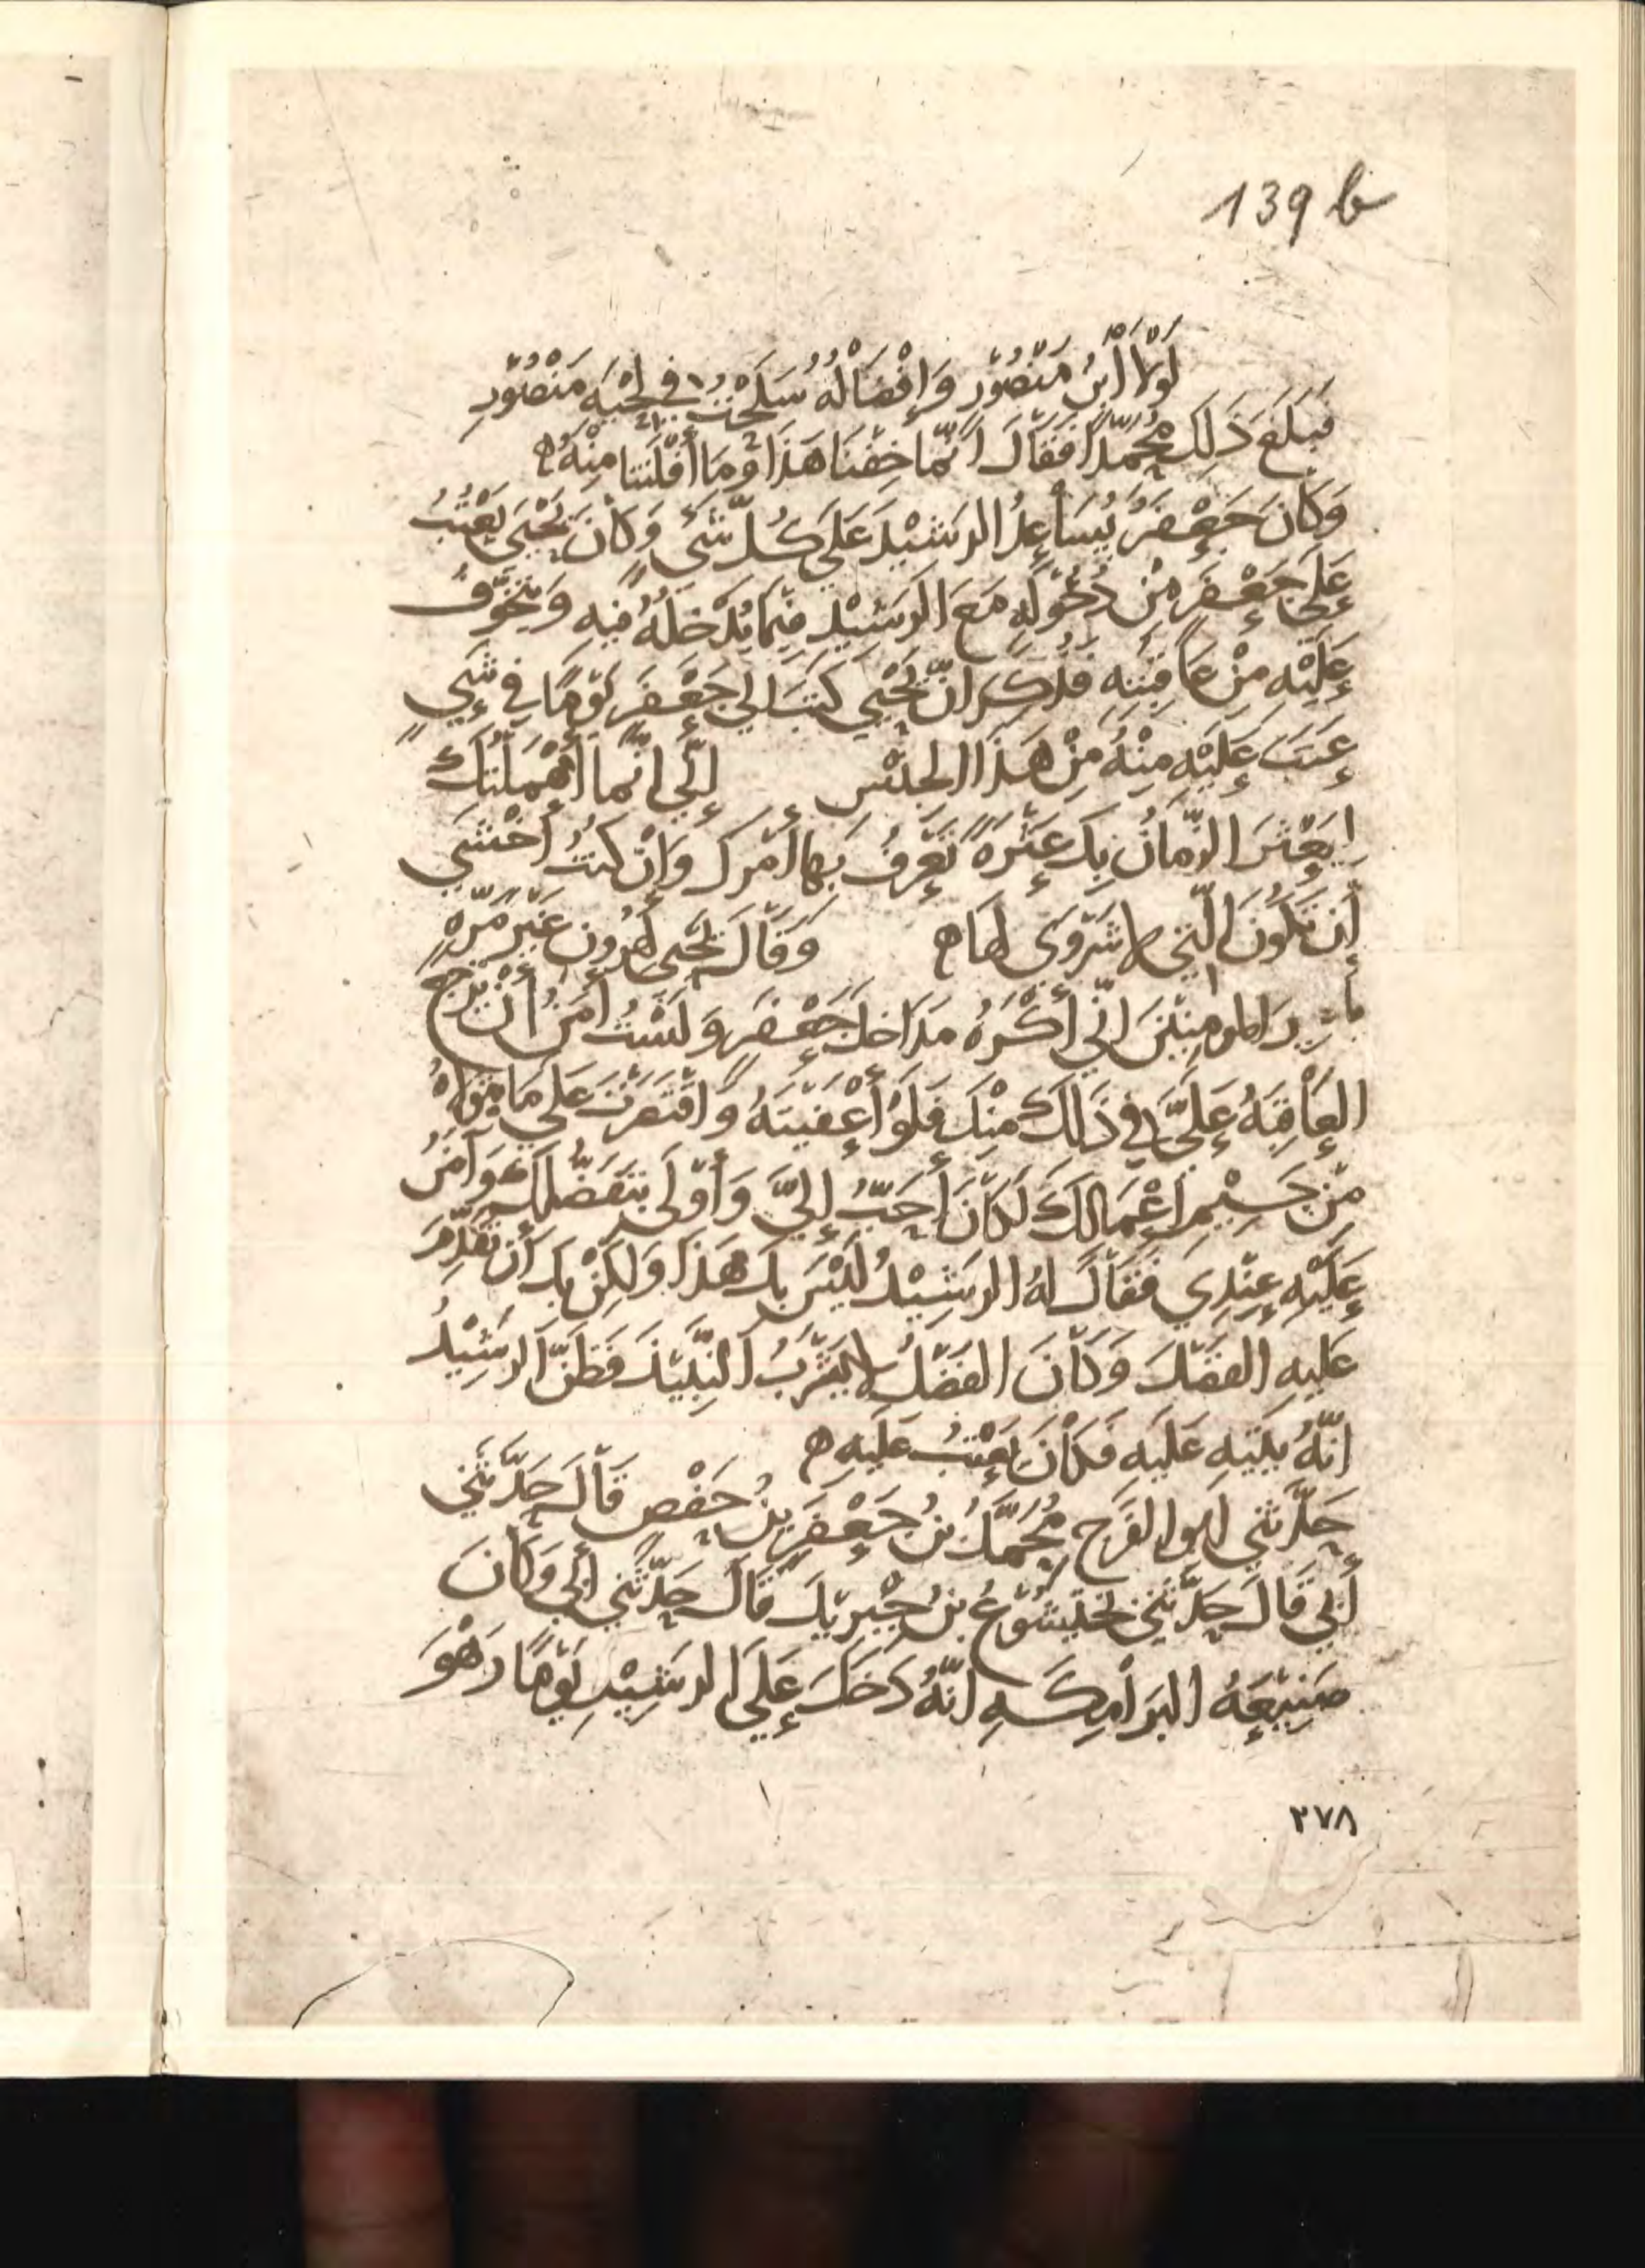 139 b
لَوْلَا أَبُنُ مَنْصُوْرٍ وَإِفْضَالُهُ سَلَحْتُ في لِحْيَةِ مَنْصُوْرِ
فَبَلَغَ ذَلِكَ مُحَمَّدًا فَقَالَ انّمَا خِفْنَا هَذَا وَمَا أَفْلَتنَا مِنْهُ ه
وَكَانَ جَعْفَرُ يُسَاعِدُ الرشِيْدَ عَلَى كُلّ شَيْ وَكَانَ يَحْيَي يَعْتِبُ
عَلَى جَعْفَر مِنْ دُخُوْلِهِ مَعَ الرَشِيْدِ فِيْمَا يُدْخِلُهُ فيه وَيَتَخَوَّفُ
عَلَيْهِ مِنْ عَاقِبَتِهِ فَذُكِرَ انّ يَحْيي كَتَبَ الي جَعْفَرَ يَوْمًا في شَيٍ
عَتَبَ عَلَيْهِ مِنْهُ مِنْ هَذَا الجِنْسِ إنّي انّما أَهْمَلْتُكَ
ليَعْثُرَ الزّمانُ بِكَ عَثْرَةً تَعْرِفُ بِهَا أَمْرَكَ وَانْ كنتُ أَخْشَي
أن تَكُونَ الّتي لا شَرْوَى لهَا ه وَقَالَ يَحْيي لِهرُونَ غَيْرَ مَرّةٍ
يا امير المومنِيْنَ انّي أَكْرَهُ مَدَاخلَ جَعْفَر وَلَسْتُ أمَنُ أَنْ تَرْجعَ
العَاقِبَةُ عَلَيَّ في ذَلِكَ مِنْكَ فَلَوْ أَعْفَيْتَهُ وَاقْتَصَرْتَ عَلَى مَا يَتَوَلاهُ
مِنْ جَسِيْمِ أَعْمَالِكَ لَكَانَ أَحَبُّ إليَّ وَأَوْلَى بتَفَضُّلِكَ وَآمَنُ
عَلَيْهِ عِنْدِي فَقَالَ لهُ الرشِيْدُ لَيْسَ بِكَ هَذَا وَلكِنْ بِكَ أَن تُقَدِّمَ
عَلَيهِ الفَضْلَ وَكَانَ الفَضْلُ لا يَشْرَبُ النَّبِيْذَ فَظَنَّ الرشِيْدُ
انّهُ يَتِيْهِ عَلَيهِ فَكَانَ يَعْتِبُ عَلَيهِ ه
حَدَّثَنِي ابُو الفَرَجِ مُحَمَّدُ بنُ جَعْفَرِ بنُ حَفْصٍ قَالَ حَدَّثَنِي
أَبِي قَالَ حَدَّثَنِي بَخْتَيْشُوْعُ بنُ جِبْرِيْلَ قَالَ حَدَّثَنِي ابي وَكَانَ
صَنِيْعَةُ البَرَامِكَهِ انّهُ دَخَلَ عَلَي الرشِيْدِ يَوْمًا وَهْوَ
٢٧٨